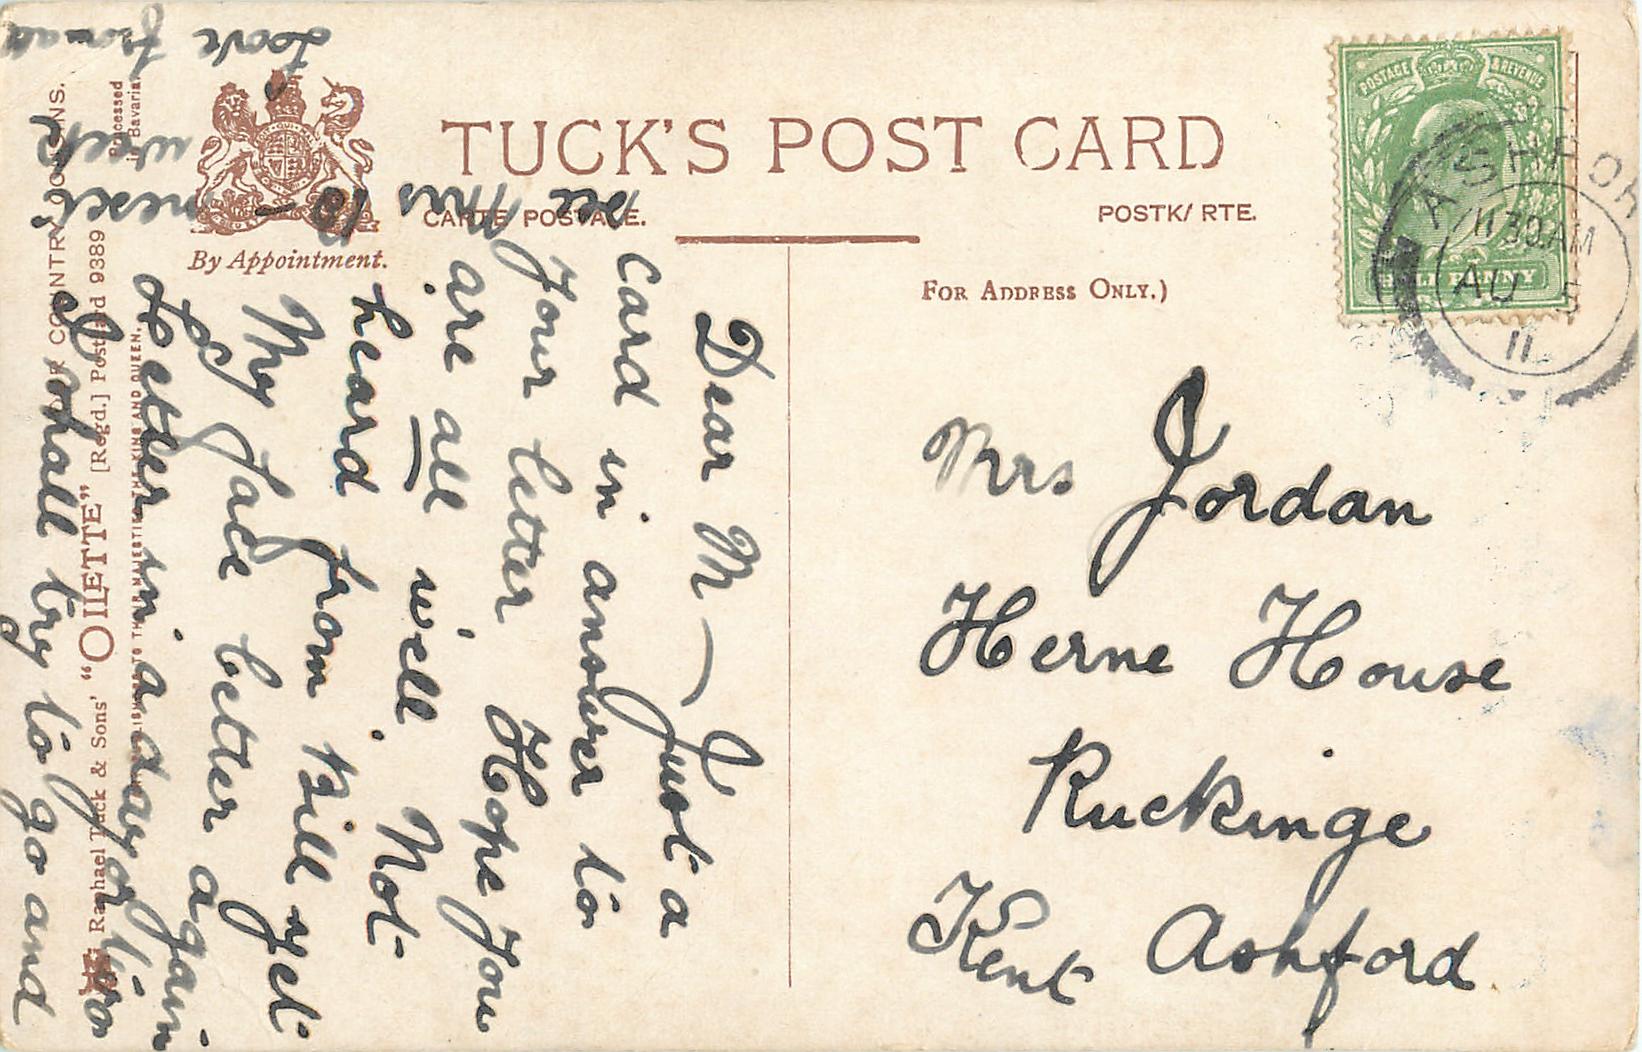 TUCK'S POST CARD
CARTE POSTALE.
POSTKARTE.
By Appointment.
FOR ADDRESS ONLY.)
POSTAGE & REVENUE
HALF PENNY
ASHFOR
11 30.AM
AU 5
11
Mrs Jordan
Herne House
Ruckinge
Kent Ashford
Dear M — Just a
Card in answer to
Your letter Hope You
are all well. Not
heard from Bill yet
My face better again
Letter in a day or two
I shall try to go and
see Mrs
next week
Love from all
Raphael Tuck & Sons' "OILETTE" [Regd.] Postcard 9389
PUBLISHERS TO THEIR MAJESTIES THE KING AND QUEEN.
COUNTRY
Processed
in Bavaria